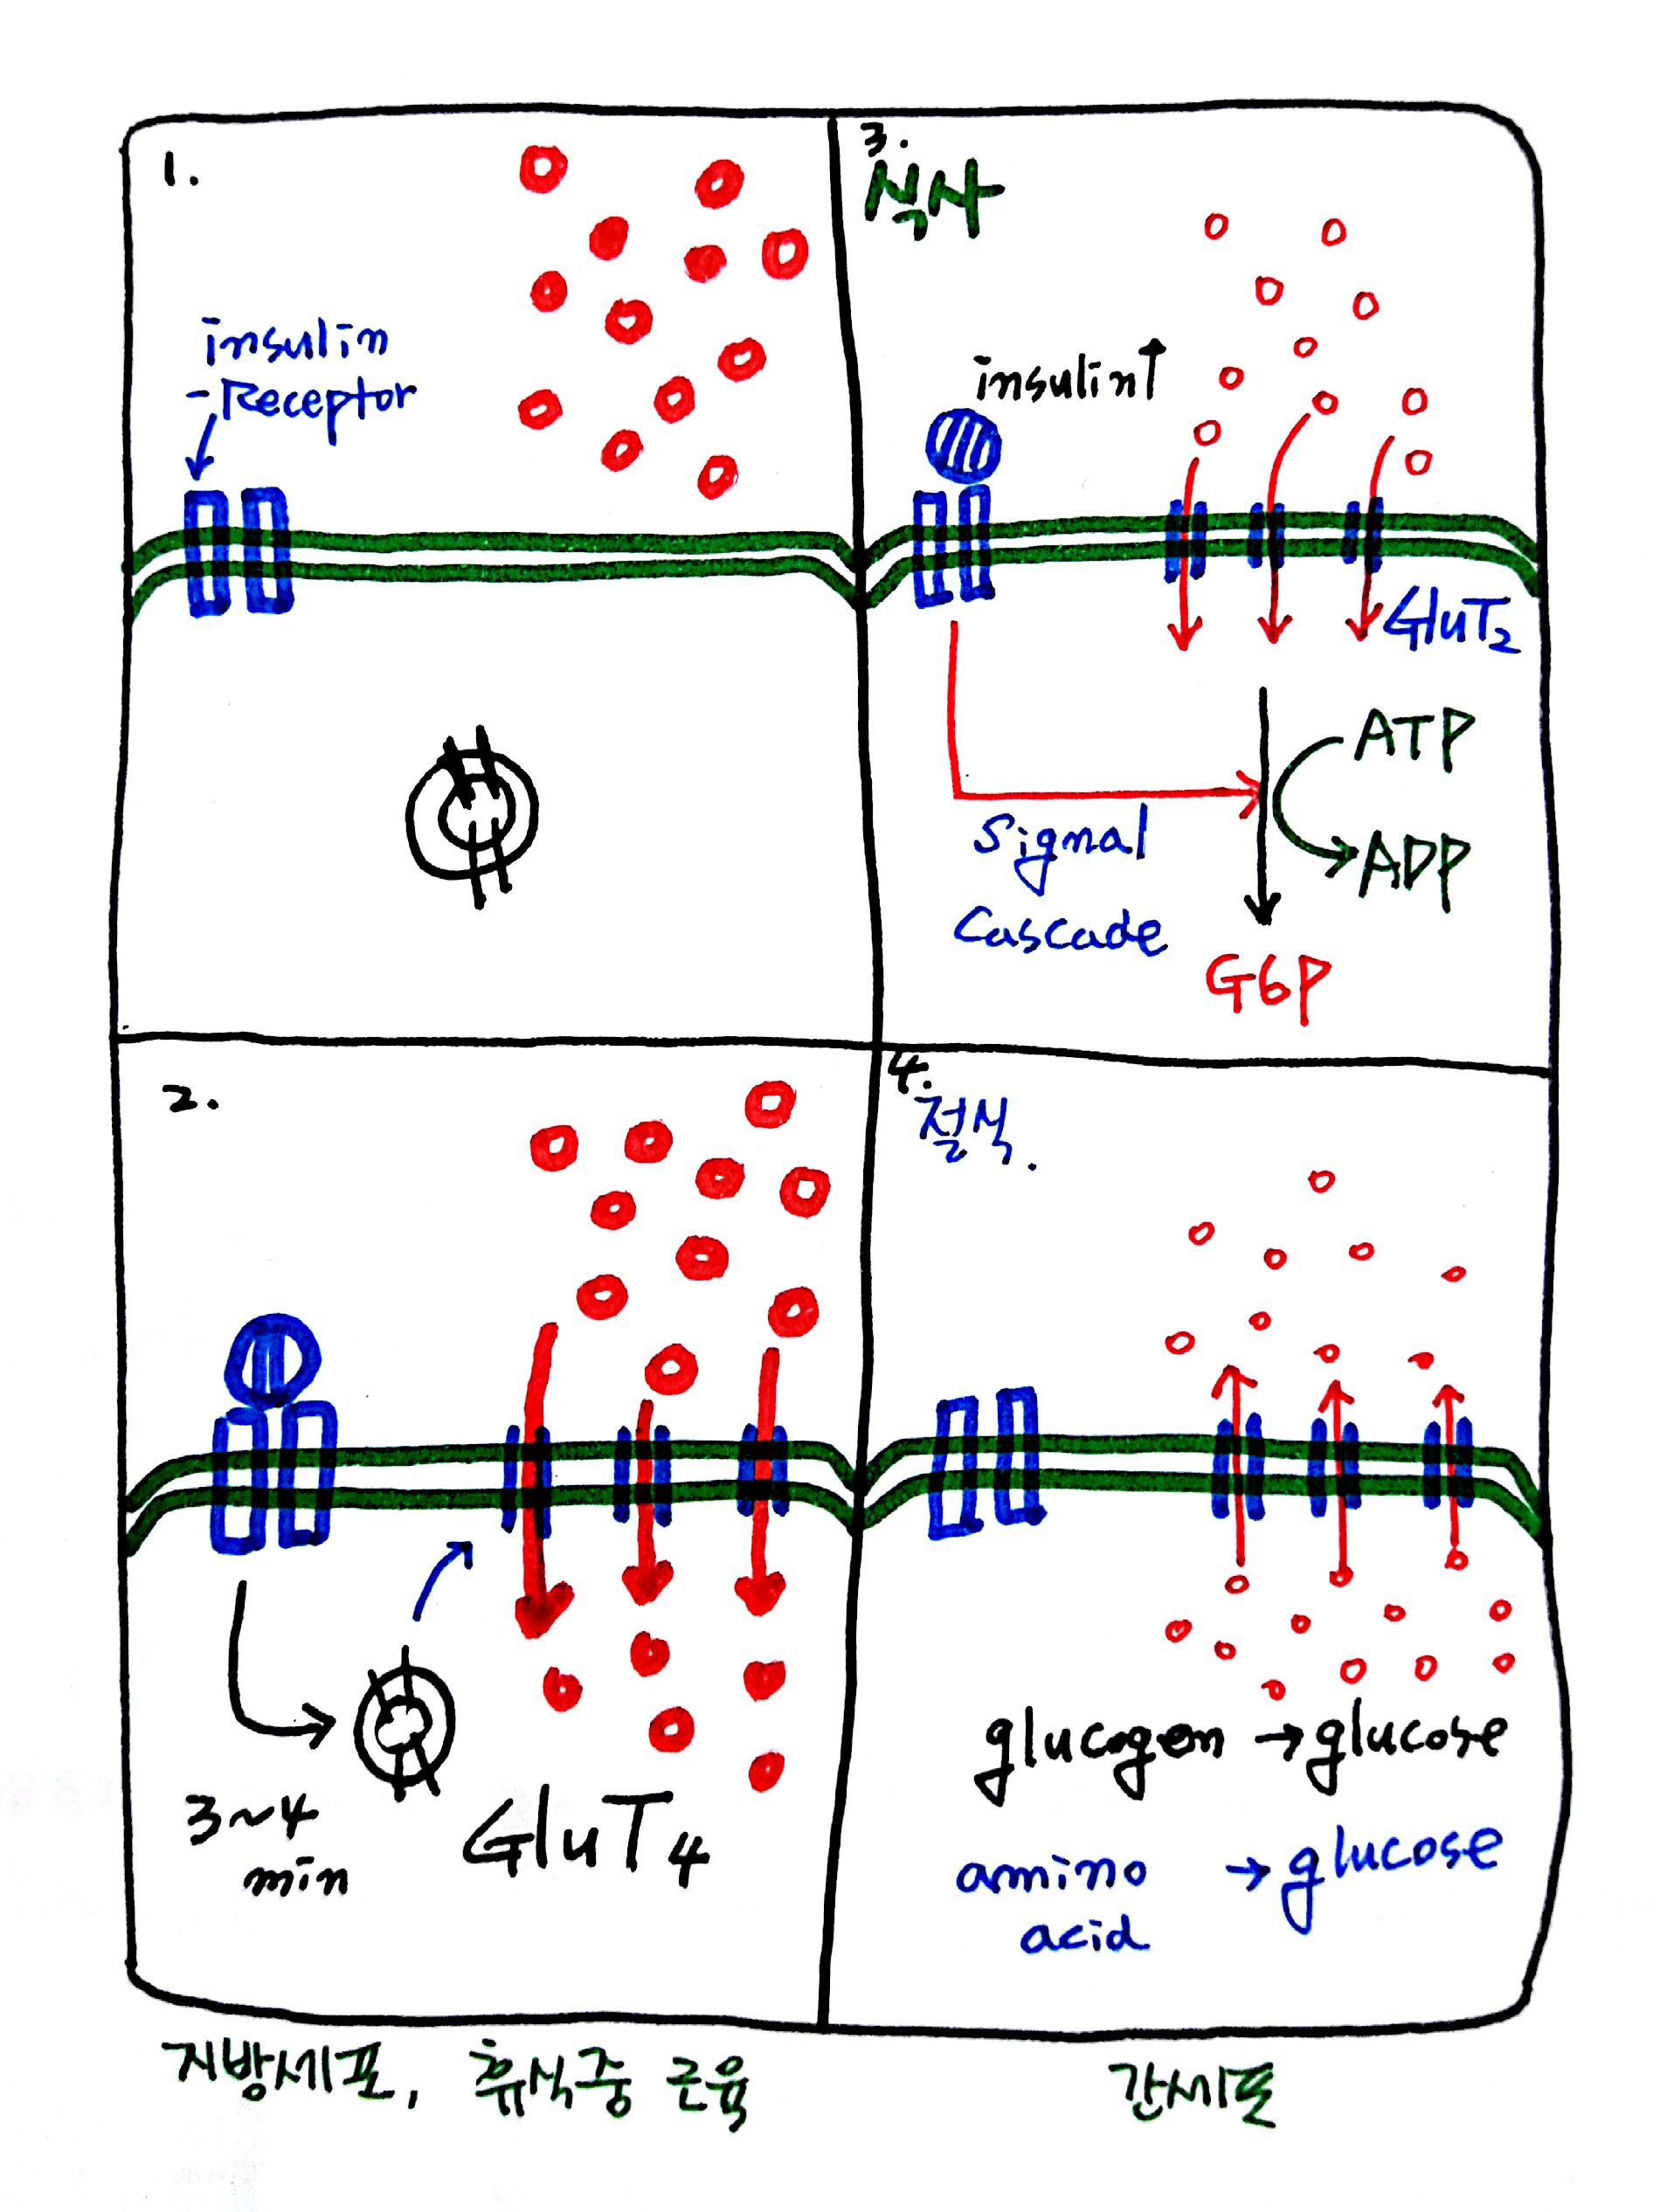 1.
insulin
-Receptor
2.
3~4
min
GluT4
지방세포, 휴식중 근육
3.
식사
insulin↑
GluT2
ATP
ADP
Signal
Cascade
G6P
4.
절식.
glucogen → glucose
amino → glucose
acid
간세포